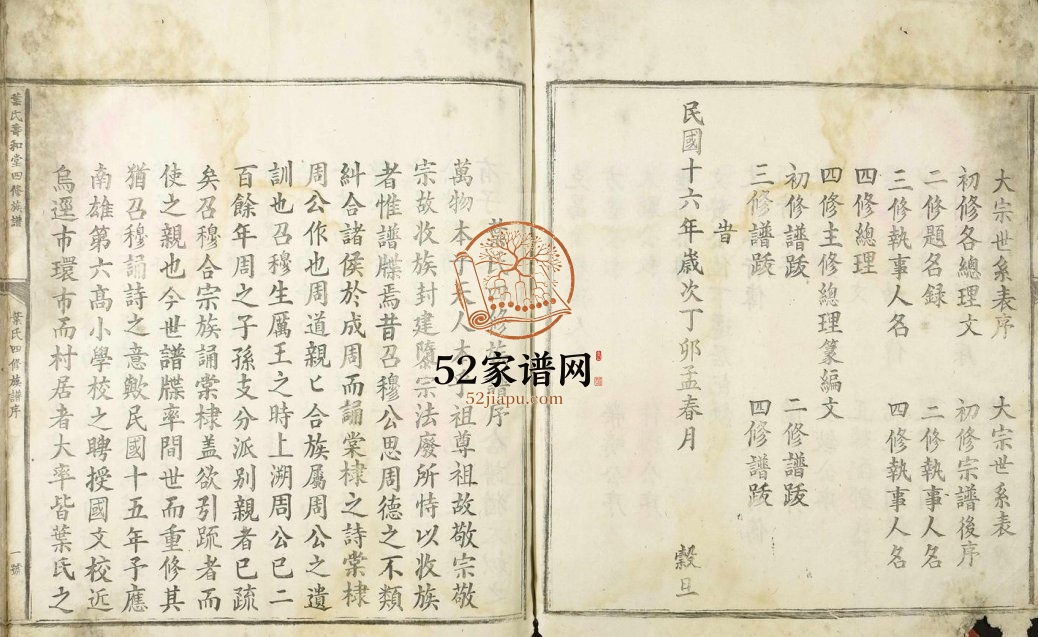 大宗世系表序 大宗世系表
初修各總理文 初修宗譜後序
二修題名録 二修執事人名
三修執事人名 四修執事人名
四修總理
四修主修總理篆編文
初修譜跋 二修譜跋
三修譜跋 四修譜跋
旹
民國十六年歲次丁卯孟春月 榖旦
葉氏 四修族譜序
萬物本 天人本 祖尊祖故敬宗敬
宗故收族封建隳宗法廢所恃以收族
者惟譜牒焉昔召穆公思周德之不類
糾合諸侯於成周而誦棠棣之詩棠棣
周公作也周道親匕合族屬周公之遺
訓也召穆生厲王之時上溯周公已二
百餘年周之子孫支分派別親者已疏
矣召穆合宗族誦棠棣盖欲引䟽者而
使之親也今世譜牒率間世而重修其
猶召穆誦詩之意歟民國十五年予應
南雄第六高小學校之聘授國文校近
烏逕市環市而村居者大率皆葉氏之
葉氏壽和堂四修族譜
葉氏四修族譜序
一號
52家谱网
52jiapu.com